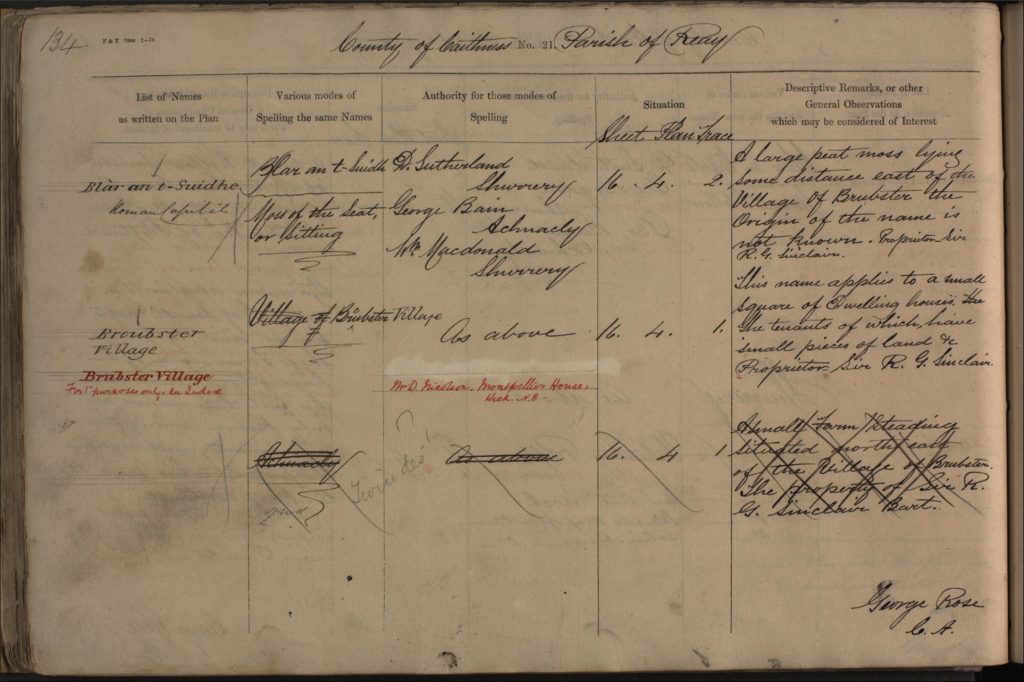 134
V & T 7000 3-25
County of Caithness No. 21. Parish of Reay
List of Names
as written on the Plan
Various modes of
Spelling the same Names
Authority for those modes of
Spelling
Situation
Descriptive Remarks, or other
General Observations
which may be considered of Interest
Sheet Plan Trace
Blàr an t-Suidhe
Roman Capital
Blar an t-Suidh
Moss of the Seat,
or Sitting
D. Sutherland
Shurrery
George Bain
Achnacly
Wm Macdonald
Shurrery
16. 4. 2.
A large peat moss lying
some distance east of the
Village of Brubster the
Origin of the name is
not known. Proprietor Sir
R. G. Sinclair.
Broubster
Village
Village of Brubster Village
As above
16. 4. 1.
This name applies to a small
Square of Dwelling houses. The
the tenants of which, have
small pieces of land &c.
Proprietor Sir R. G. Sinclair.
Brubster Village
purposes only, see Index
Mr D. Nicolson, Montpellier House,
Wick. N.B
Achnacly
As above
Twice des
16. 4 1
A small Farm Steading
situated north east
of the Village of Brubster.
The property of Sir R.
G. Sinclair Bart.
George Rose
C. A.